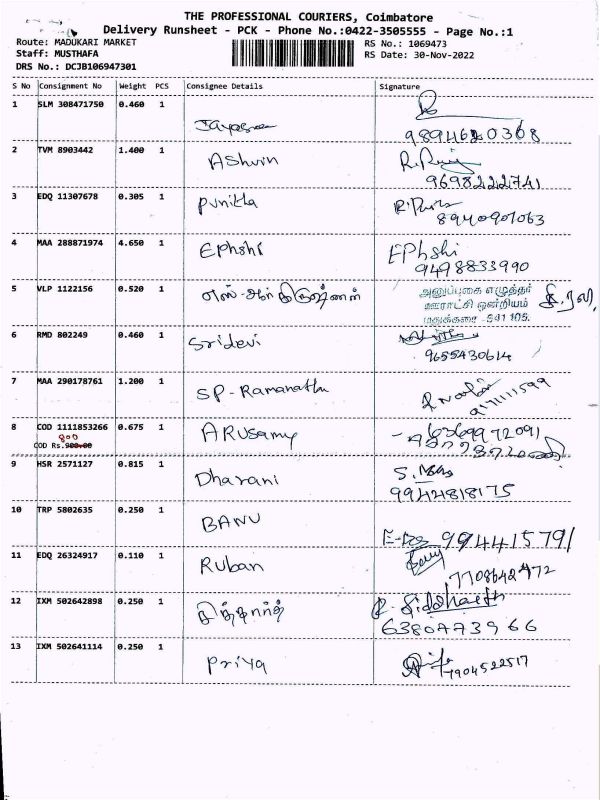 THE PROFESSIONAL COURIERS, Coimbatore
Delivery Runsheet - PCK - Phone No.:0422-3505555 - Page No.:1
Route: MADUKARI MARKET RS No.: 1069473
Staff: MUSTHAFA RS Date: 30-Nov-2022
DRS No.: DCJB106947301
S No Consignment No Weight PCS Consignee Details Signature
1 SLM 308471750 0.460 1
9894620368
2 TVM 8903442 1.400 1 Ashvin
9698222741
3 EDQ 11307678 0.305 1 Punitha
8940901063
4 MAA 288871974 4.650 1 EPhshi EPhshi
9498833990
5 VLP 1122156 0.520 1
ஊராட்சி ஒன்றியம்
மதுக்கரை -641 105.
6 RMD 802249 0.460 1 Sridevi
9655430614
7 MAA 290178761 1.200 1 SP-Ramanathan
9171111599
8 COD 1111853266 0.675 1 ARUSamy 6369972091
900
COD Rs.900.00
9 HSR 2571127 0.815 1 Dharani
9944818175
10 TRP 5802635 0.250 1 BANU
9944415791
11 EDQ 26324917 0.110 1 Ruban
7708642472
12 IXM 502642898 0.250 1 சித்தார்த் R. Siddharth
6380473966
13 IXM 502641114 0.250 1 Priya
7904522517